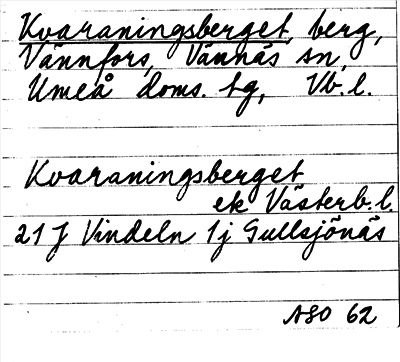 Kvaraningsberget, berg,
Vännfors, Vännäs sn,
Umeå doms. tg, Vb. l.
Kvaraningsberget
ek Västerb. l.
21 J Vindeln 1j Gullsjönäs
ASO 62